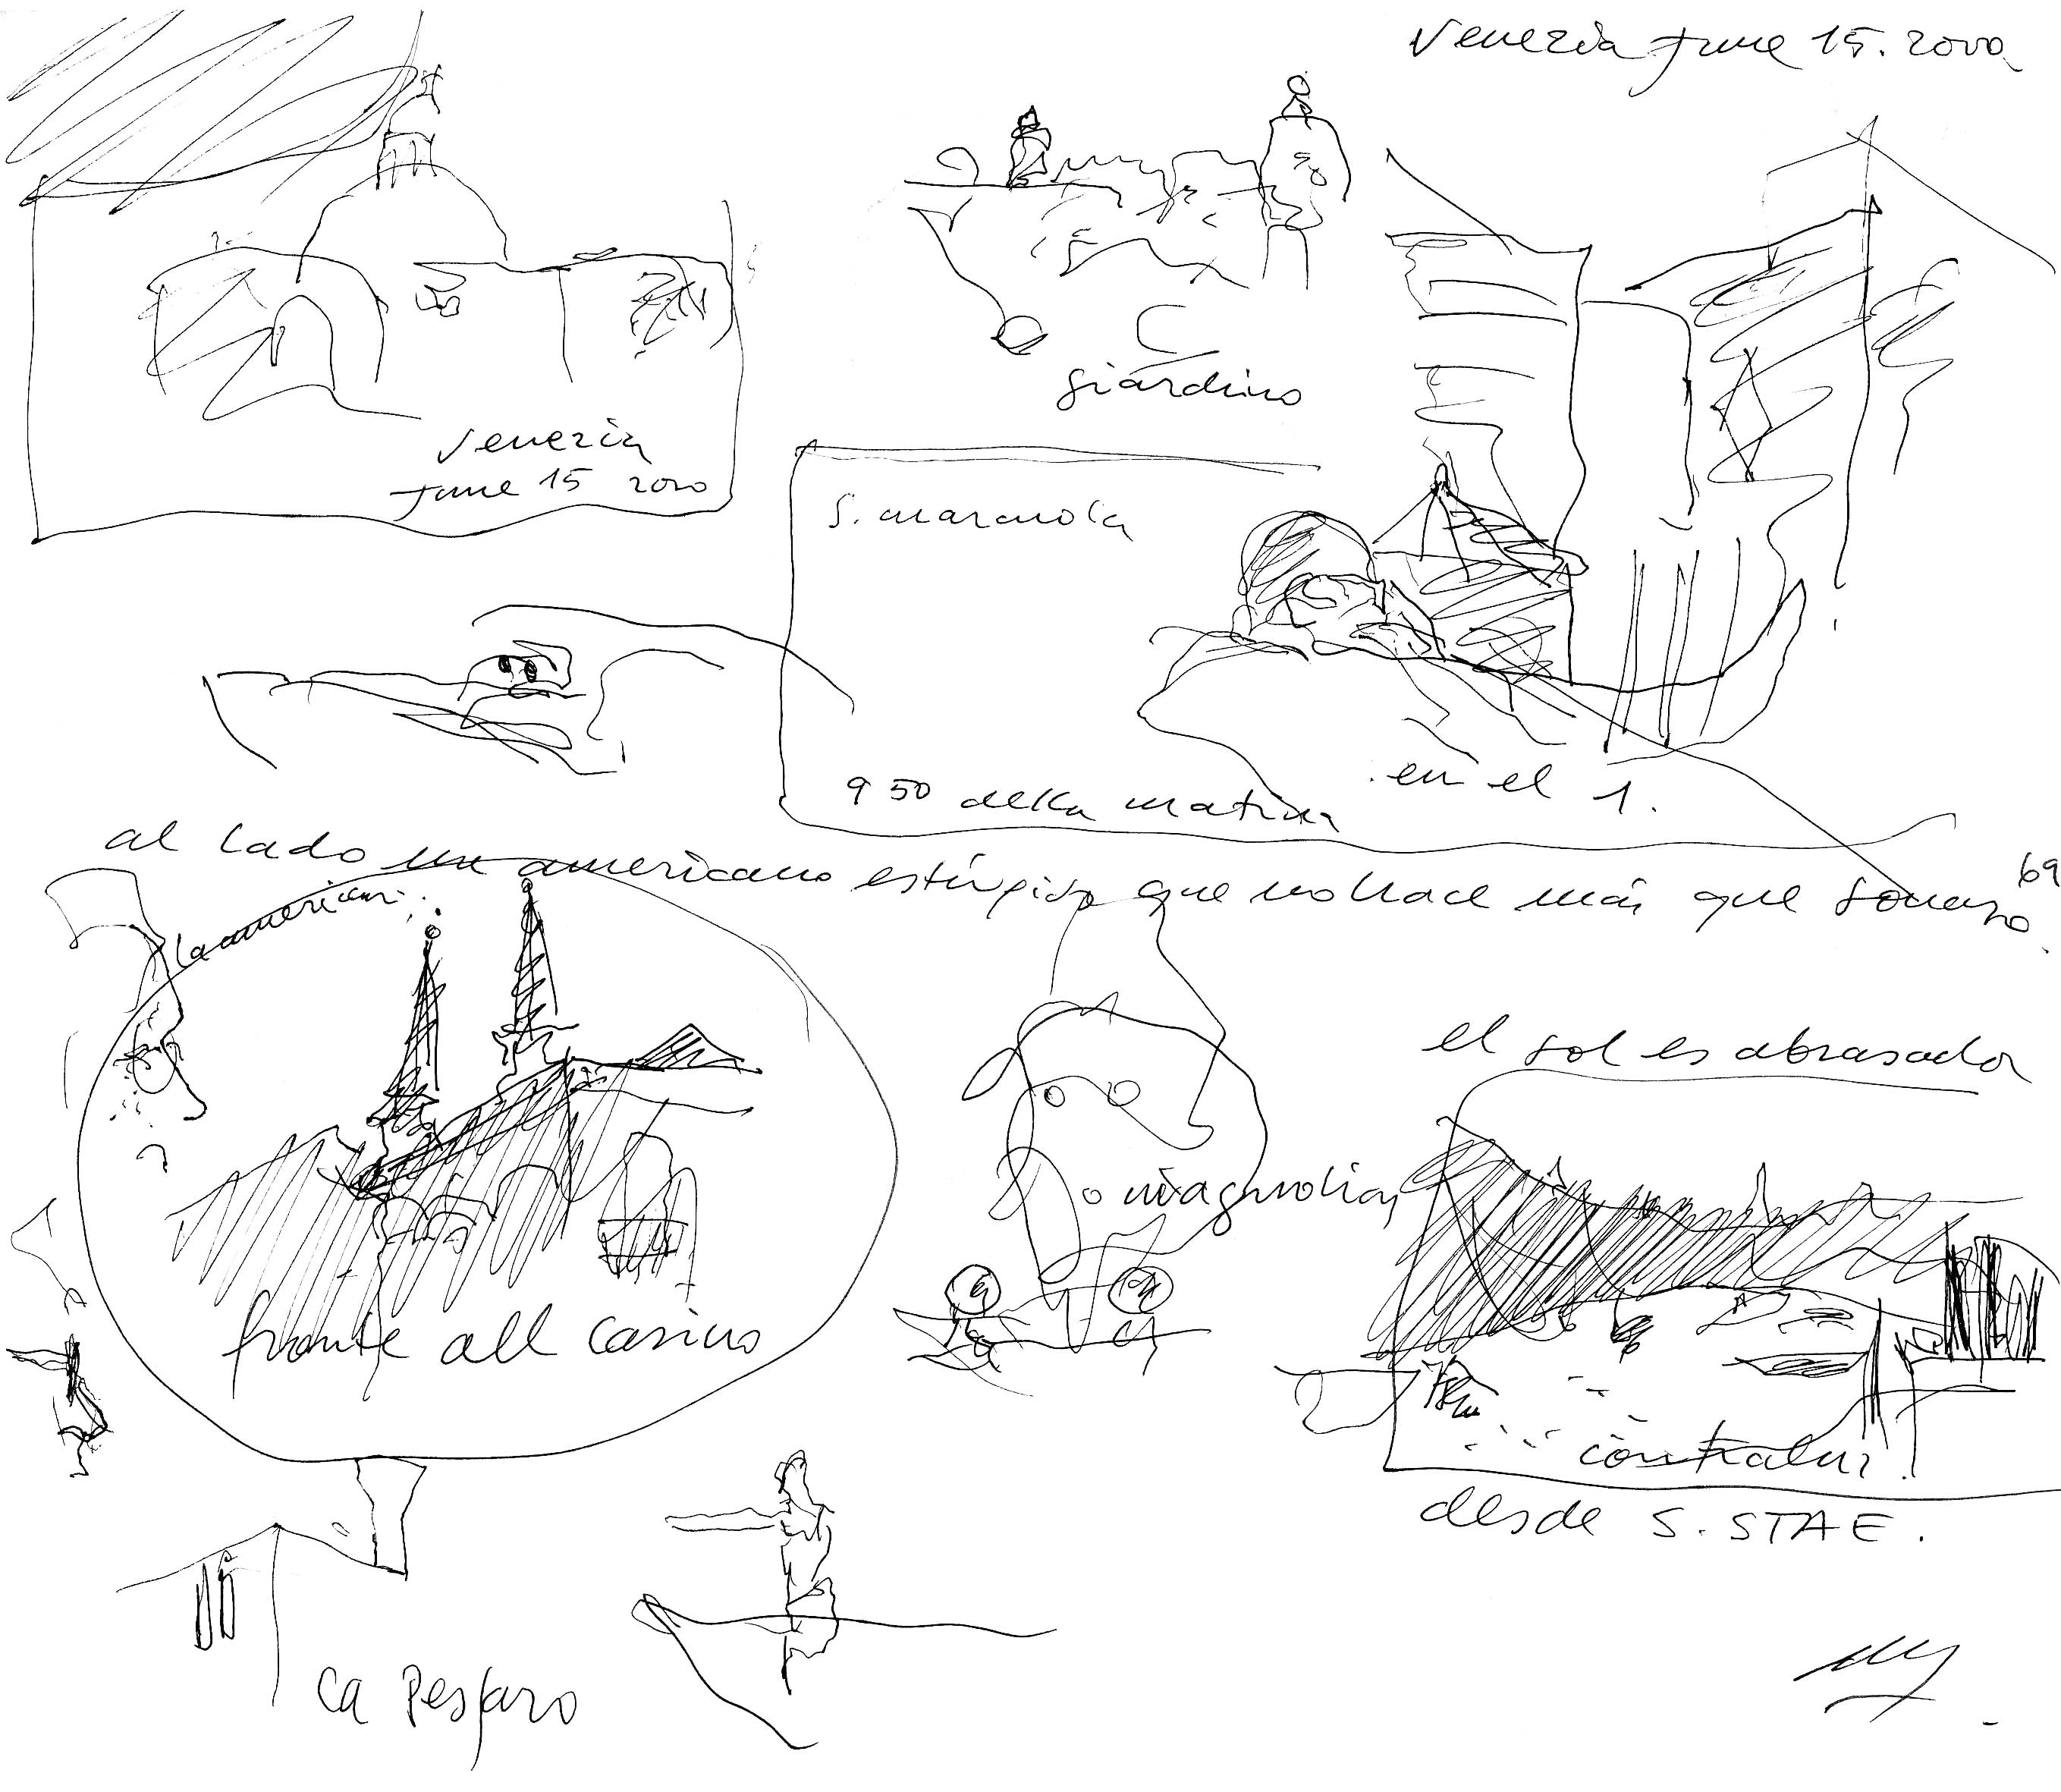 Venezia June 15. 2000
giardino
Venezia
June 15 2000
S. Marcuola
9 50 della matina
en el 1.
al lado un americano estúpido que no hace más que
69
el sol es abrasador
magnolia
fronte all casino
contraluz
desde S. STAE.
Ca Pesaro